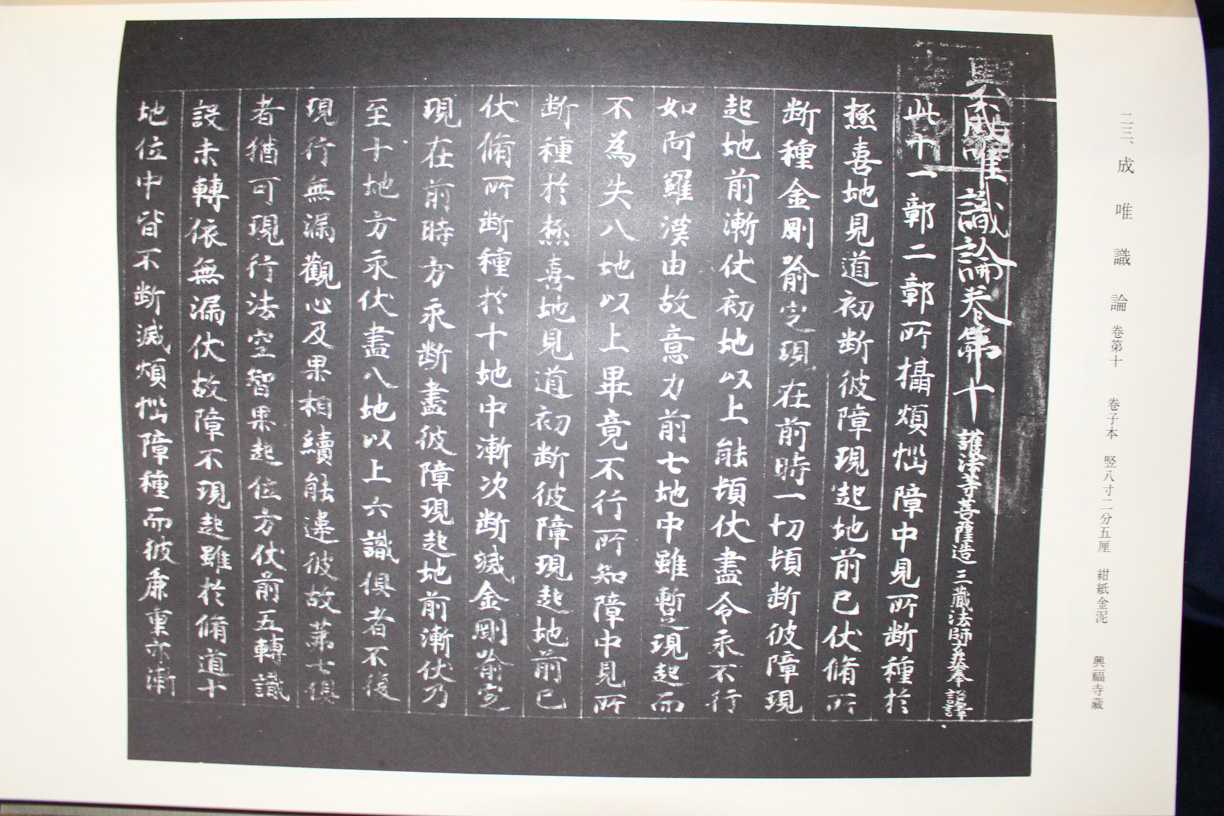 二三、成唯識論 卷第十 卷子本 竪八寸二分五厘 紺紙金泥 興福寺藏
成唯識論卷第十 護法等菩薩造 三藏法師玄奘奉 詔譯
此十一鄣二鄣所攝煩惱障中見所斷種於
極喜地見道初斷彼障現起地前已伏脩所
斷種金剛喻定現在前時一切頓斷彼障現
起地前漸伏初地以上能頓伏盡令永不行
如阿羅漢由故意力前七地中雖暫現起而
不為失八地以上畢竟不行所知障中見所
斷種於極喜地見道初斷彼障現起地前已
伏脩所斷種於十地中漸次斷滅金剛喻定
現在前時方永斷盡彼障現起地前漸伏乃
至十地方永伏盡八地以上六識俱者不復
現行無漏觀心及果相續能違彼故第七俱
者猶可現行法空智果起位方伏前五轉識
設未轉依無漏伏故障不現起雖於脩道十
地位中皆不斷滅煩惱障種而彼麁重亦漸